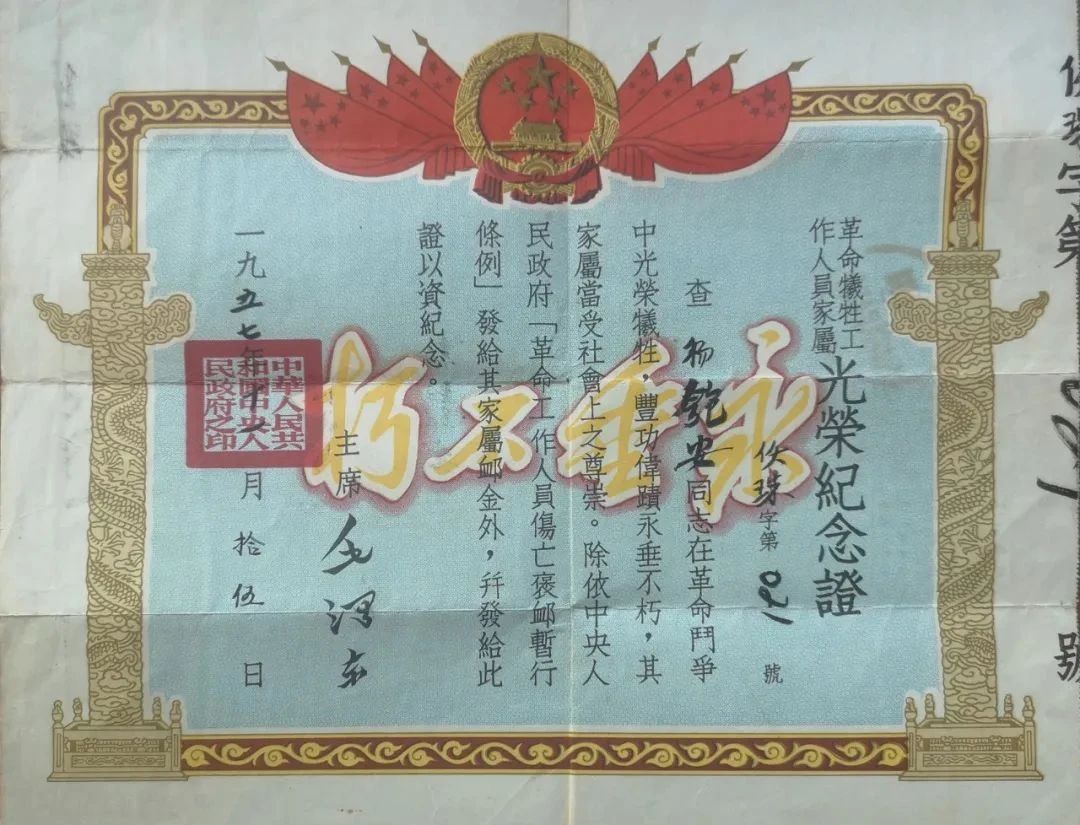 革命犧牲工作人員家屬光榮紀念證
佚珠字第 號
查楊匏安同志在革命鬥爭
中光榮犧牲，豐功偉蹟永垂不朽，其
家屬當受社會上之尊崇。除依中央人
民政府「革命工作人員傷亡褒卹暫行
條例」發給其家屬卹金外，幷發給此
證以資紀念。
主席 毛澤東
一九五七年十二月拾伍日
中華人民共和國中央人民政府之印
永垂不朽
佚珠字第 號